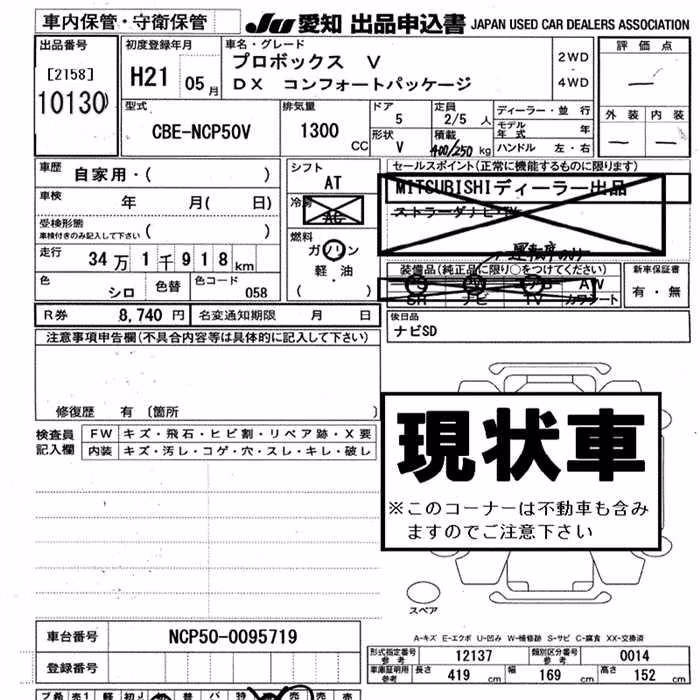 車内保管・守衛保管
JU 愛知 出品申込書 JAPAN USED CAR DEALERS ASSOCIATION
出品番号
[2158]
10130
初度登録年月
H21 05月
車名・グレード
プロボックス V
DX コンフォートパッケージ
2WD
4WD
評価点
—
外装 内装
— —
型式
CBE-NCP50V
排気量
1300 CC
ドア
5
形状
V
定員
2/5 人
積載
400/250 kg
ディーラー・並行
モデル年式 年
ハンドル 左・右
車歴
自家用・( )
車検 年 月( 日)
受検形態
車検付きのみ記入して下さい ( )
走行
34万1千918km
色 シロ 色替
色コード 058
シフト
AT
冷房
AC
燃料
ガソリン
軽・油
( )
セールスポイント(正常に機能するものに限ります)
MITSUBISHIディーラー出品
ストラーダナビ・TV
運転席のみ
装備品(純正品に限り○をつけてください)
AW
SR ナビ TV カワシート
新車保証書
有・無
R券 8,740 円 名変通知期限 月 日
後日品
ナビSD
注意事項申告欄(不具合内容等は具体的に記入して下さい)
修復歴 有 〔箇所 〕
検査員記入欄
FW キズ・飛石・ヒビ割・リペア跡・X要
内装 キズ・汚レ・コゲ・穴・スレ・キレ・破レ
現状車
※このコーナーは不動車も含み
ますのでご注意下さい
スペア
A-キズ E-エクボ U-凹み W-補修跡 S-サビ C-腐食 XX-交換済
車台番号 NCP50-0095719
登録番号
形式指定番号 参考 12137 類別区分番号 参考 0014
車庫証明用 参考 長さ 419 cm 幅 169 cm 高さ 152 cm